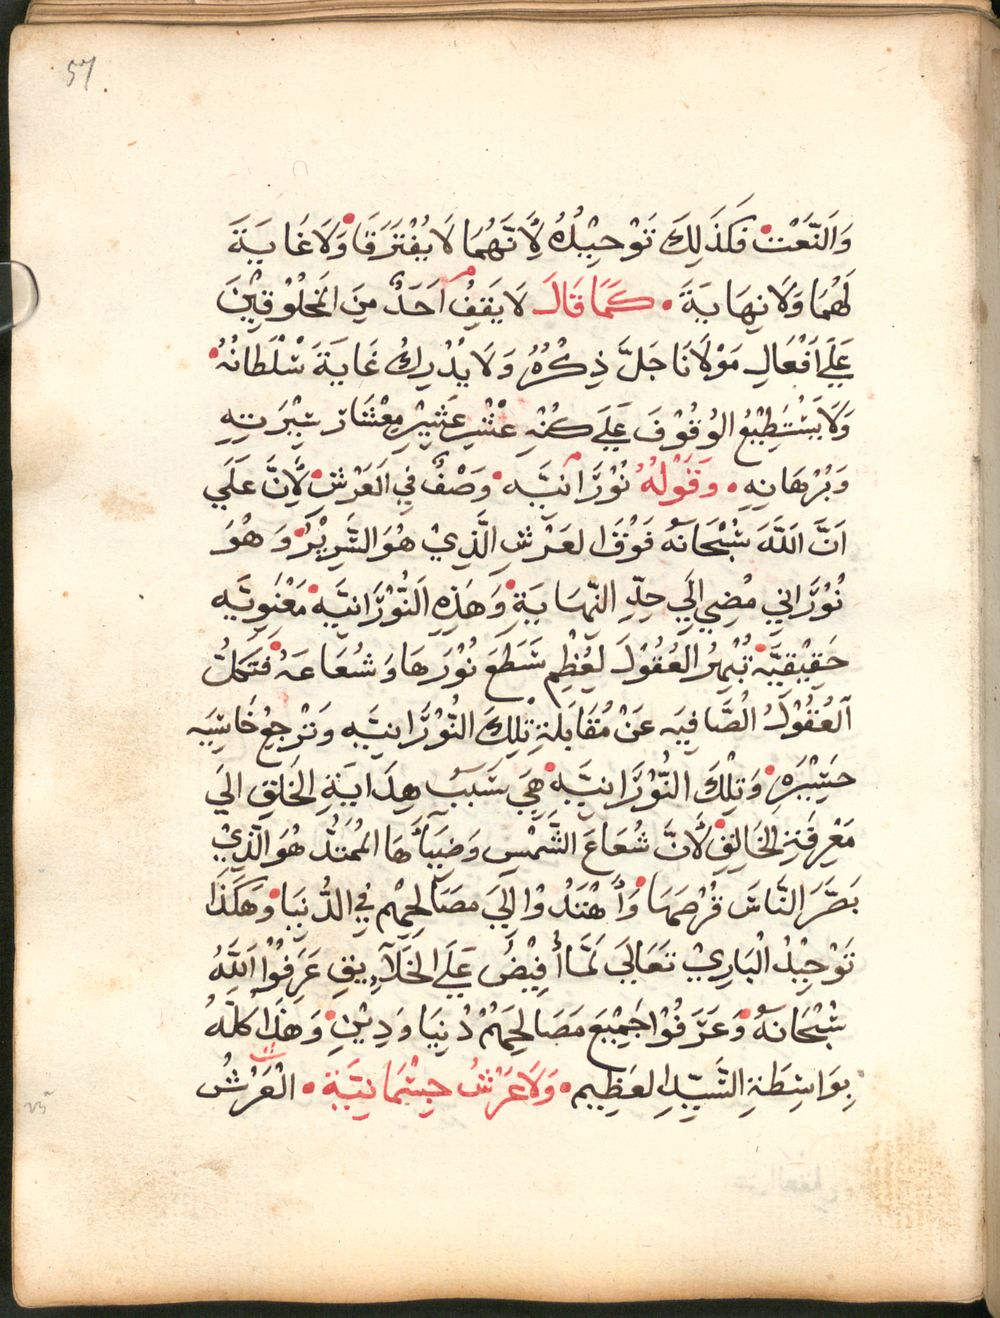 57.
وَالنَّعْتْ فَكَذَلِكَ تَوْحِيْدُهُ لَأَنَّهُمَا لَا يُفْتَرَقَا وَلَا غَايَةَ
لَهُمَا وَلَا نِهَايَةَ . كَمَا قَالَ لَا يَقِفُ اَحَدٌ مِنَ الَمخْلُوْقِيْنَ
عَلَي اَفْعَالِ مَوْلَانَا جَلَّ ذِكْرُهُ وَلَا يُدْرِكُ غَايَةَ سُلْطَانُهُ
وَلَا يَسْتَطِيْعُ الوُقُوْفَ عَلَي كُنْهِ عُشْرِ عَشِيْرِ مِعْشَار سِيْرَتِهِ
وَبُرْهَانِهِ . وَقَوْلُهُ نُوْرَانيَّه . وَصْفٌ فِي العَرْشِ لَأِنَّ عَلَي
اَنَّ اللَّهَ سُبْحَانَهُ فَوْقَ العَرْشِ الَّذِيْ هُوَ السَّرِيْرُ وَهُوَ
نُوْرَاني مُضِي اِلَي حَدِّ النِّهَايَةِ وَهَذِهِ النُّوْرَانيَّه مَعْنَوِيَّه
حَقِيْقِيَّه تُبْهِرُ العُقُوْلَ لِعُظْمِ سَطَعَ نُوْرَهَا وَشُعَاعَهُ فَتَكِلُّ
اَلعُقُوْلُ الصَّافِيَه عَنْ مُقَابَلَةِ تِلْكَ النُّوْرَانيَّه وَتَرْجِعْ خَاسِيَه
حَسِيْرَه وَتِلْكَ النُّوْرَانيَّه هِيَ سَبَبْ هِدَايَةِ الخَلْقِ اِلَي
مَعْرِفَةِ الخَالِقِ لَأنَّ شُعَاعَ الشَّمْسِ وَضِيَأهَا المُمْتَدُّ هُوَ الَّذِيْ
بَصَّرَ النَّاسَ قُرْصَهَا وَأهْتَدُوْا اِلَي مَصَالِحِهِمْ فِي الدُّنيَا وَهَكَذَا
تَوْحِيْدُ البَارِيْ تَعَالَي لَمَّا أُفِيْضُ عَلَي الخَلَايِقِ عَرَفُوْا اَللَّهُ
سُبْحَانَهُ وَعَرَفُوْا جَمِيْعَ مَصَالِحِهِمْ دُنيَا وَدِيْنِ وَهَذَا كُلَّهُ
بِوَاسِطَةِ السَّيِّدِ العَظِيْمِ . وَلَا عَرْشُ جِسْمَانيَّةَ . العَرْشُ